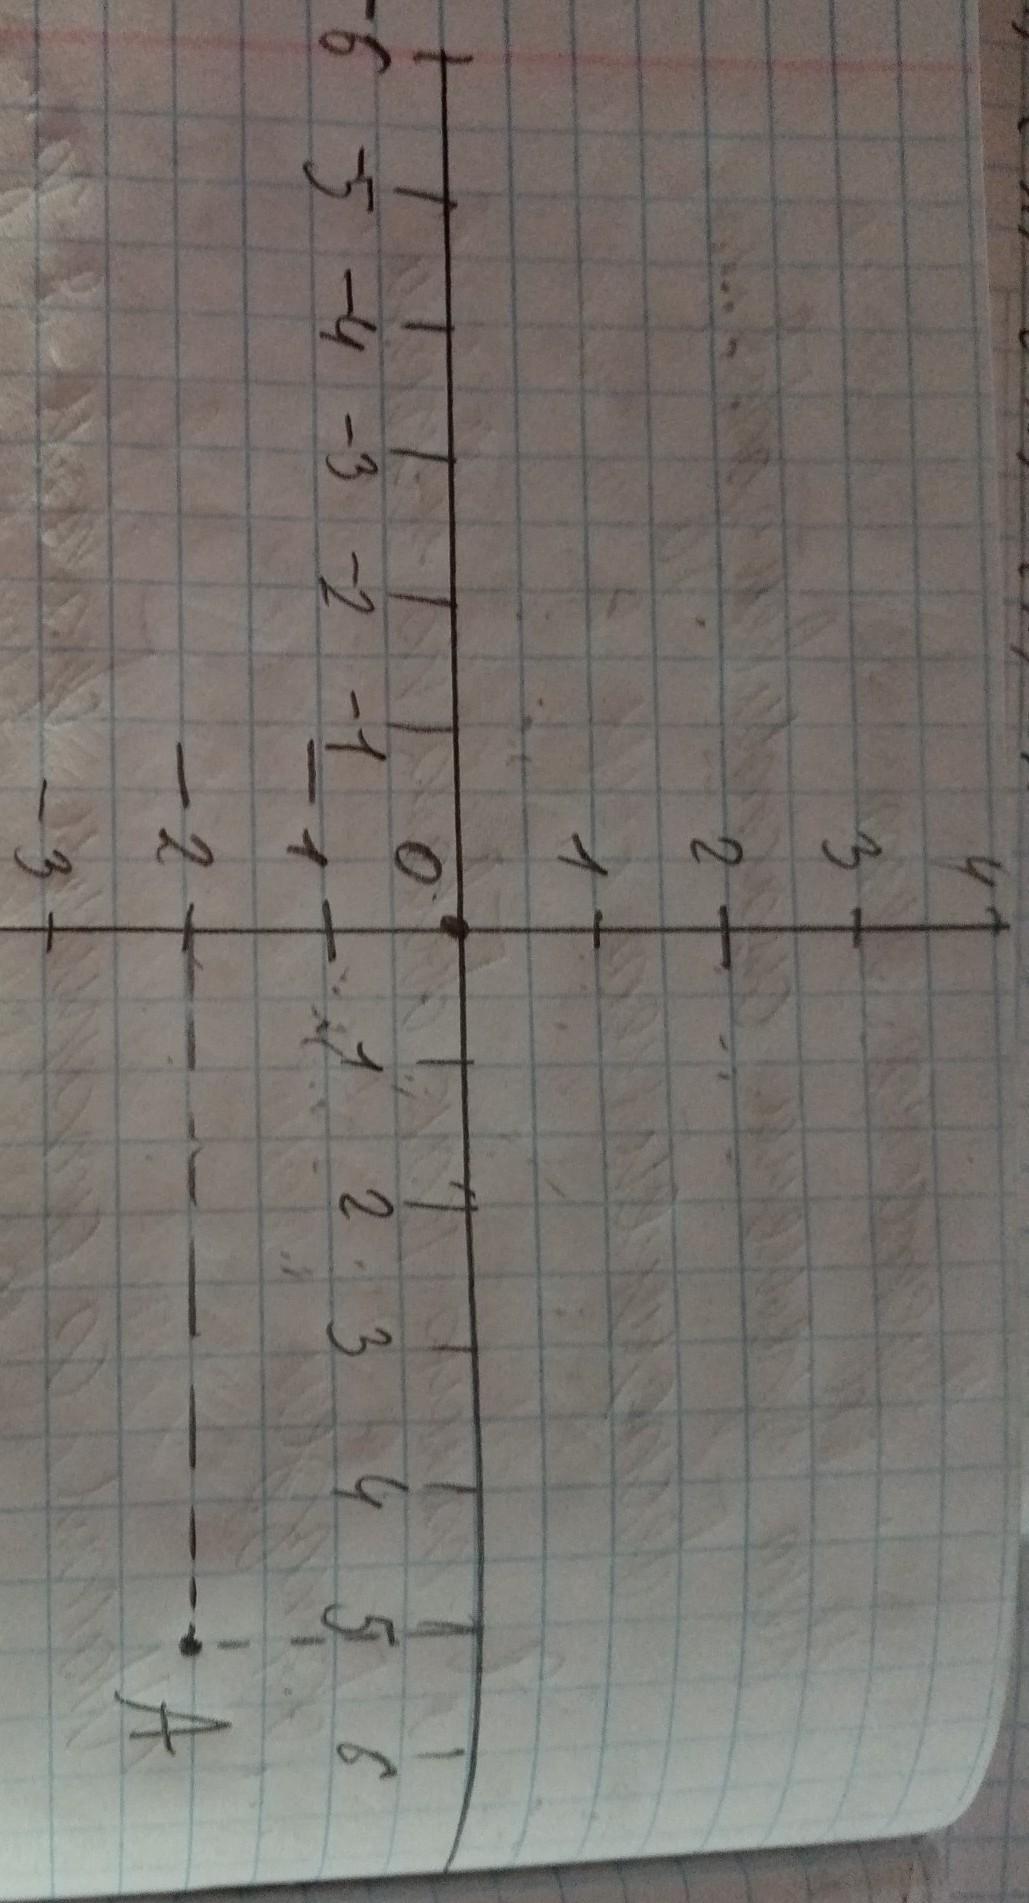 4
3
2
1
0
-6 -5 -4 -3 -2 -1 1 2 3 4 5 6
-1
-2
A
-3